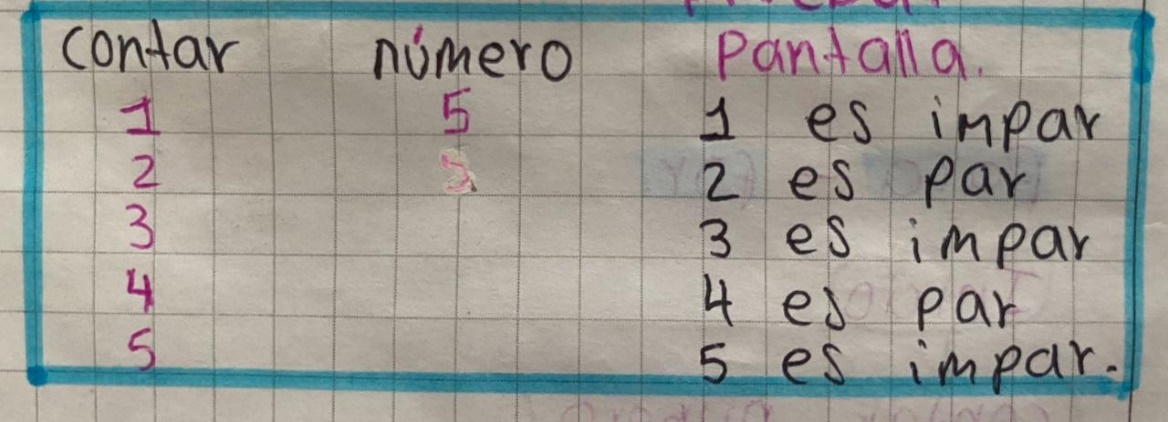 contar número Pantalla.
1 5 1 es impar
2 2 es par
3 3 es impar
4 4 es par
5 5 es impar.